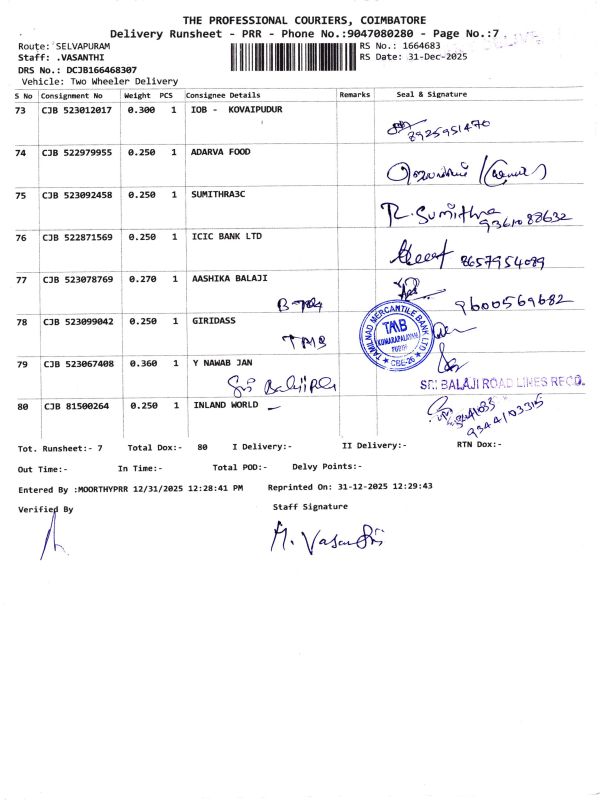 THE PROFESSIONAL COURIERS, COIMBATORE
Delivery Runsheet - PRR - Phone No.:9047080280 - Page No.:7
Route: SELVAPURAM
RS No.: 1664683
Staff: .VASANTHI
RS Date: 31-Dec-2025
DRS No.: DCJB166468307
Vehicle: Two Wheeler Delivery
S No Consignment No Weight PCS Consignee Details Remarks Seal & Signature
73 CJB 523012017 0.300 1 IOB - KOVAIPUDUR
8925951470
74 CJB 522979955 0.250 1 ADARVA FOOD
75 CJB 523092458 0.250 1 SUMITHRA3C
R. Sumithra
9361088632
76 CJB 522871569 0.250 1 ICIC BANK LTD
8657954089
77 CJB 523078769 0.270 1 AASHIKA BALAJI
9600569682
78 CJB 523099042 0.250 1 GIRIDASS
TMB
TAMILNAD MERCANTILE BANK LTD
TMB
KUMARAPALAYAM
CBE-26
79 CJB 523067408 0.360 1 Y NAWAB JAN
Sri Balaji
SRI BALAJI ROAD LINES REGD.
80 CJB 81500264 0.250 1 INLAND WORLD
9344103315
Tot. Runsheet:- 7 Total Dox:- 80 I Delivery:- II Delivery:- RTN Dox:-
Out Time:- In Time:- Total POD:- Delvy Points:-
Entered By :MOORTHYPRR 12/31/2025 12:28:41 PM Reprinted On: 31-12-2025 12:29:43
Verified By Staff Signature
M. Vasanthi